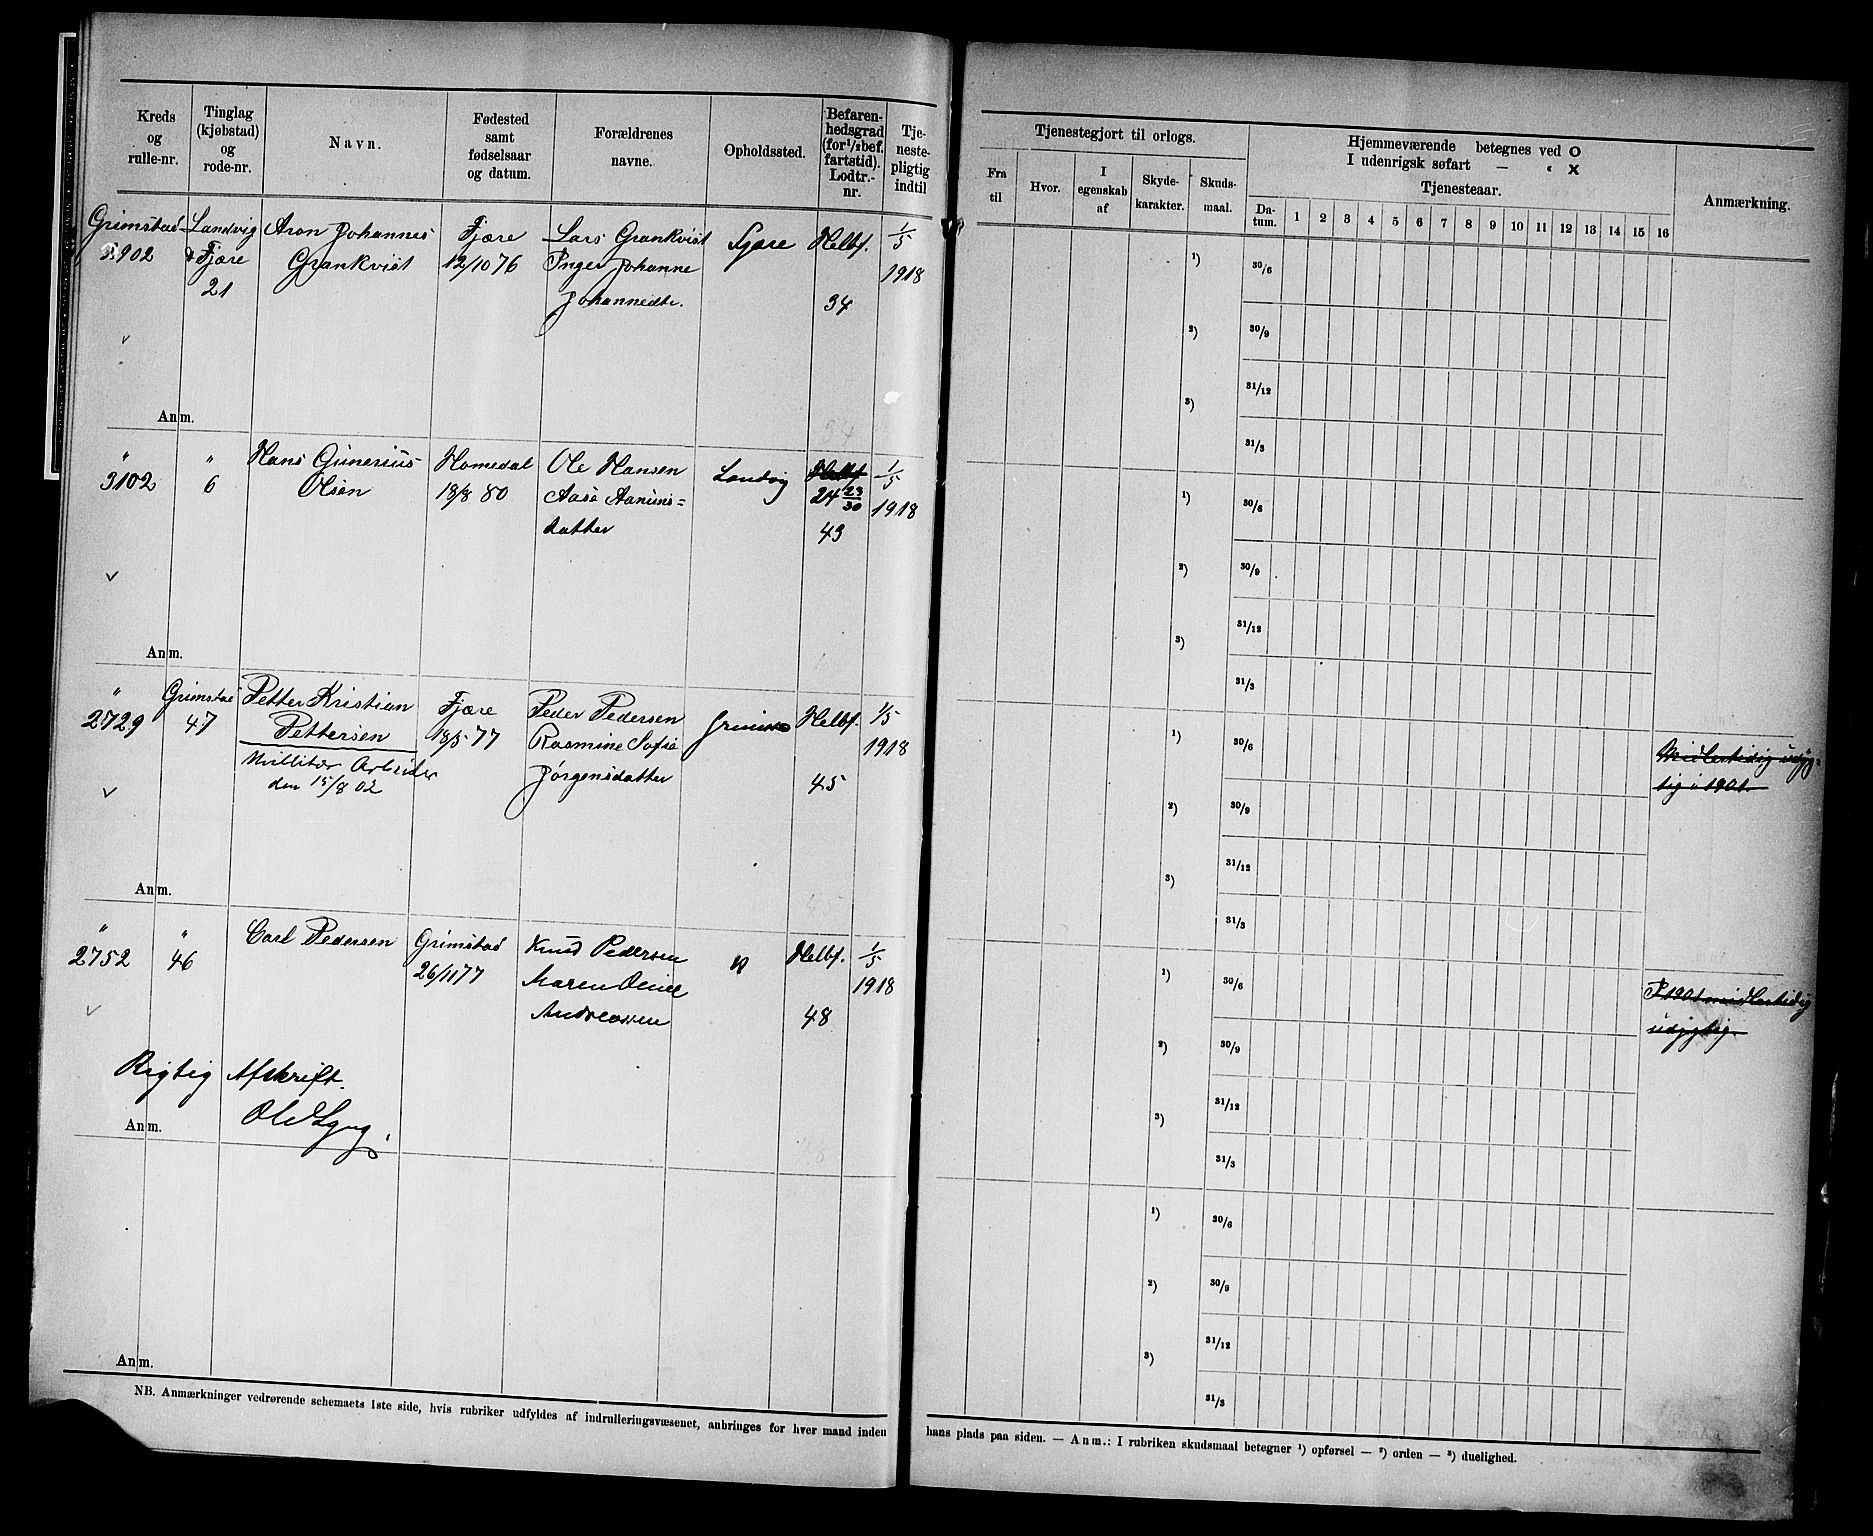 Kreds og rulle-nr.
Tinglag (kjøbstad) og rode-nr.
Navn.
Fødested samt fødselsaar og datum.
Forældrenes navne.
Opholdssted.
Befaren-hedsgrad (for 1/2 bef. fartstid). Lodtr.-nr.
Tje-neste-pligtig indtil
Tjenestegjort til orlogs.
Fra til
Hvor.
I egenskab af
Skyde-karakter.
Skuds-maal.
Hjemmeværende betegnes ved O
I udenrigsk søfart — " X
Tjenesteaar.
Da-tum. 1 2 3 4 5 6 7 8 9 10 11 12 13 14 15 16
Anmærkning.
Grimstad Landvig Aron Johannes Fjære Lars Grankvist Fjære Helbf. 1/5
3902 & Fjære Grankvist 12/10 76 Inger Johanne 1918
21 Johannedtr. 34
Anm.
" " Hans Gunerius Homedal Ole Hansen Landvig Helbf. 1/5
3102 6 Olsen 18/8 80 Aase Aanuns= 24 23/30 1918
datter 43
Anm.
" Grimstad Petter Kristian Fjære Peder Pedersen Grimstad Helbf. 1/5
2729 47 Pettersen 18/5 77 Rasmine Sofie 1918
Millitær Arbeider Jørgensdatter 45
den 15/8 02
Midlertidig udyg=
tig i 1901.
Anm.
" " Carl Pedersen Grimstad Knud Pedersen " Helbf. 1/5
2752 46 26/11 77 Maren 1918
Andreassen 48
I 1901 midlertidig
udygtig.
Rigtig Afskrift.
Anm.
1)
2)
3)
30/6
30/9
31/12
31/3
1)
2)
3)
30/6
30/9
31/12
31/3
1)
2)
3)
30/6
30/9
31/12
31/3
1)
2)
3)
30/6
30/9
31/12
31/3
1)
2)
3)
30/6
30/9
31/12
31/3
Anm.
NB. Anmærkninger vedrørende schemaets 1ste side, hvis rubriker udfyldes af indrulleringsvæsenet, anbringes for hver mand inden
hans plads paa siden. — Anm.: I rubriken skudsmaal betegner 1) opførsel — 2) orden — 3) duelighed.